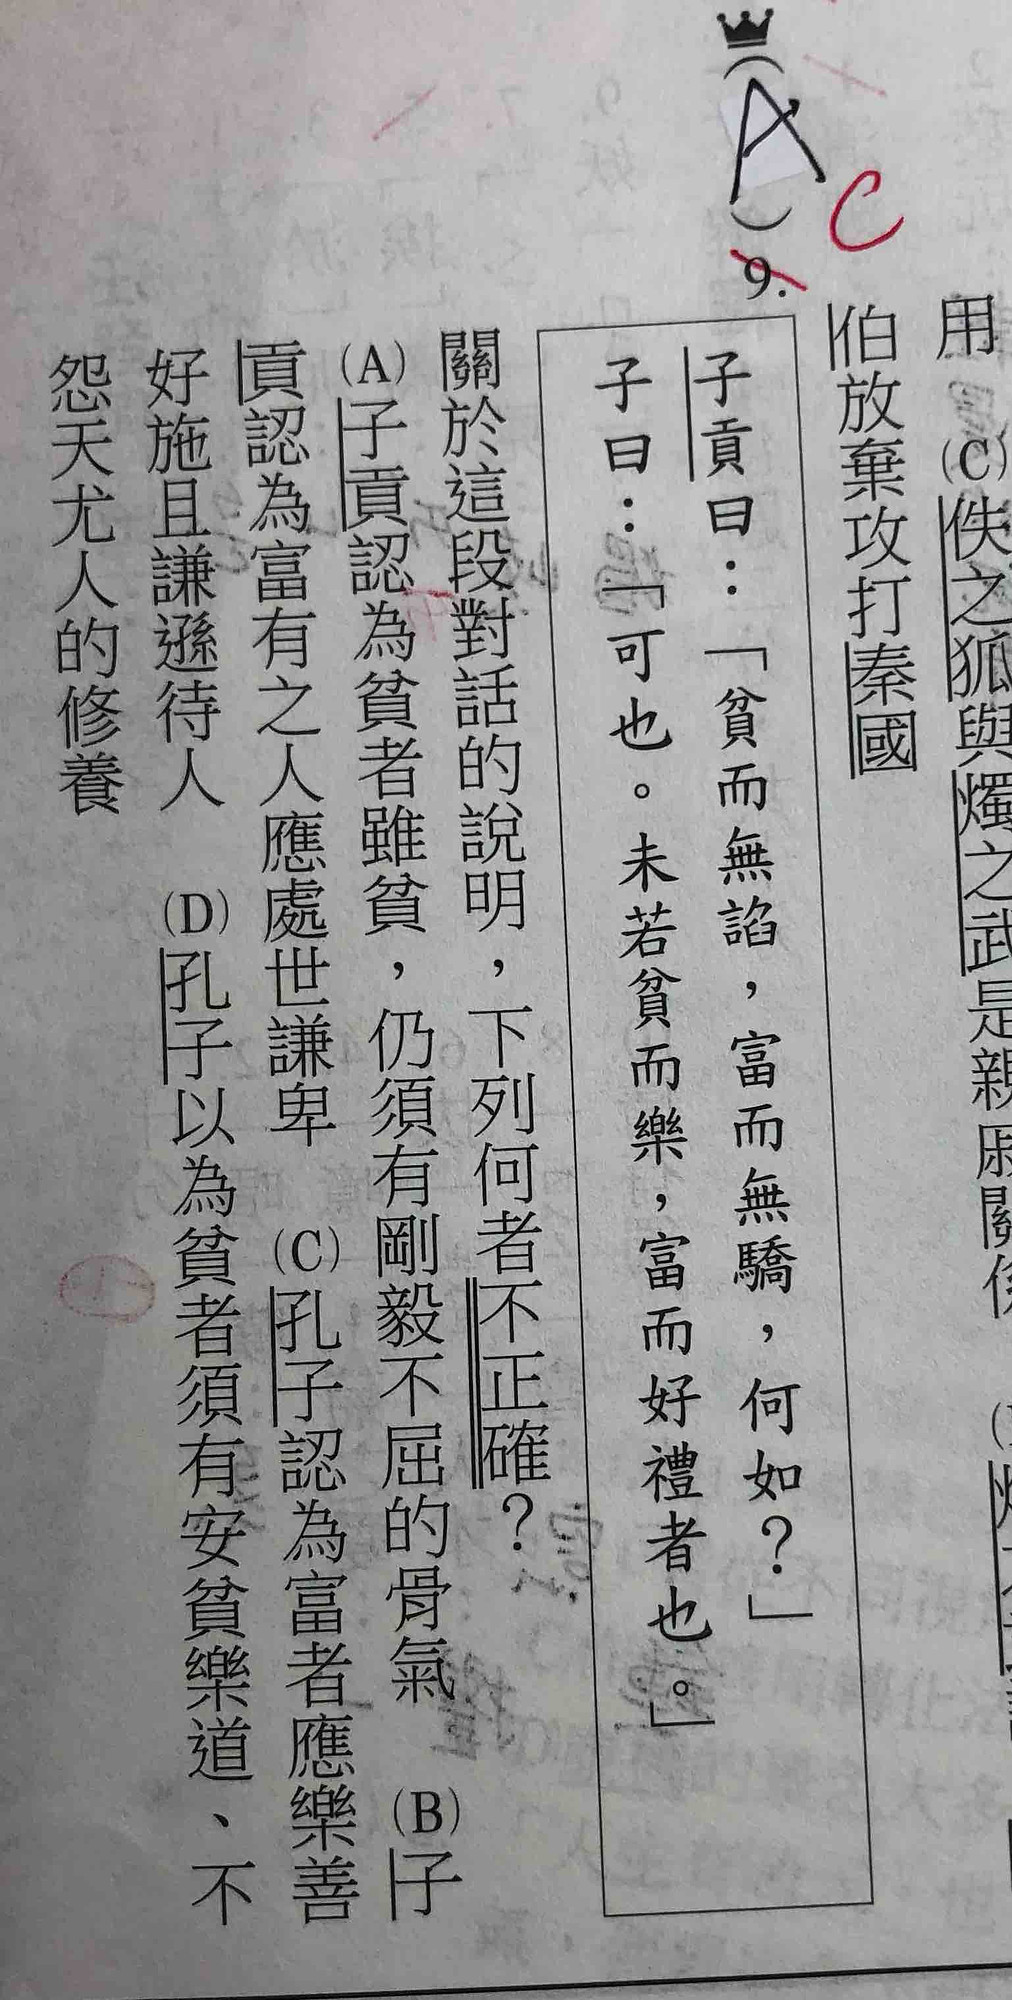 用　(C)佚之狐與燭之武是親戚關係
伯放棄攻打秦國
(A)
C
9.
子貢曰：「貧而無諂，富而無驕，何如？」
子曰：「可也。未若貧而樂，富而好禮者也。」
關於這段對話的說明，下列何者不正確？
(A)子貢認為貧者雖貧，仍須有剛毅不屈的骨氣　(B)子
貢認為富有之人應處世謙卑　(C)孔子認為富者應樂善
好施且謙遜待人　(D)孔子以為貧者須有安貧樂道、不
怨天尤人的修養